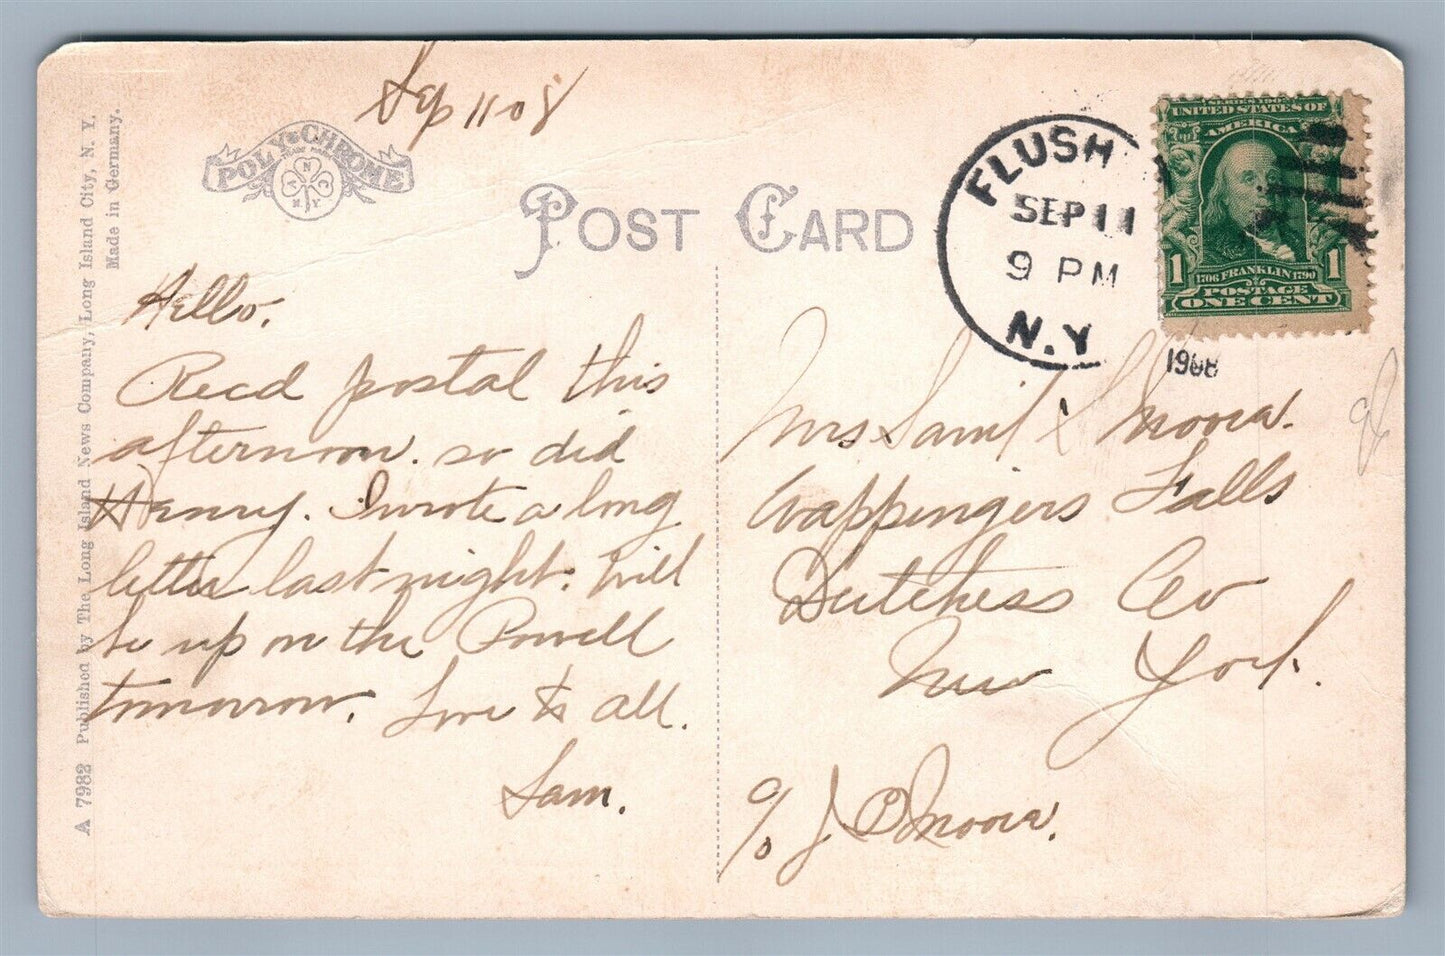 Sep 11 08
POLY-CHROME
POST CARD
FLUSH
SEP 11
9 PM
N.Y
1908
UNITED STATES OF
AMERICA
1
1706 FRANKLIN 1790
1
POSTAGE
ONE CENT
A 7982 Published by The Long Island News Company, Long Island City, N. Y.
Made in Germany.
Hello.
Recd postal this
afternoon. so did
Henry. I wrote a long
letter last night. Will
be up on the Powell
tomorrow. Love to all.
Sam.
Mrs Saml
Wappingers Falls
Dutchess Co
New York.
c/o J